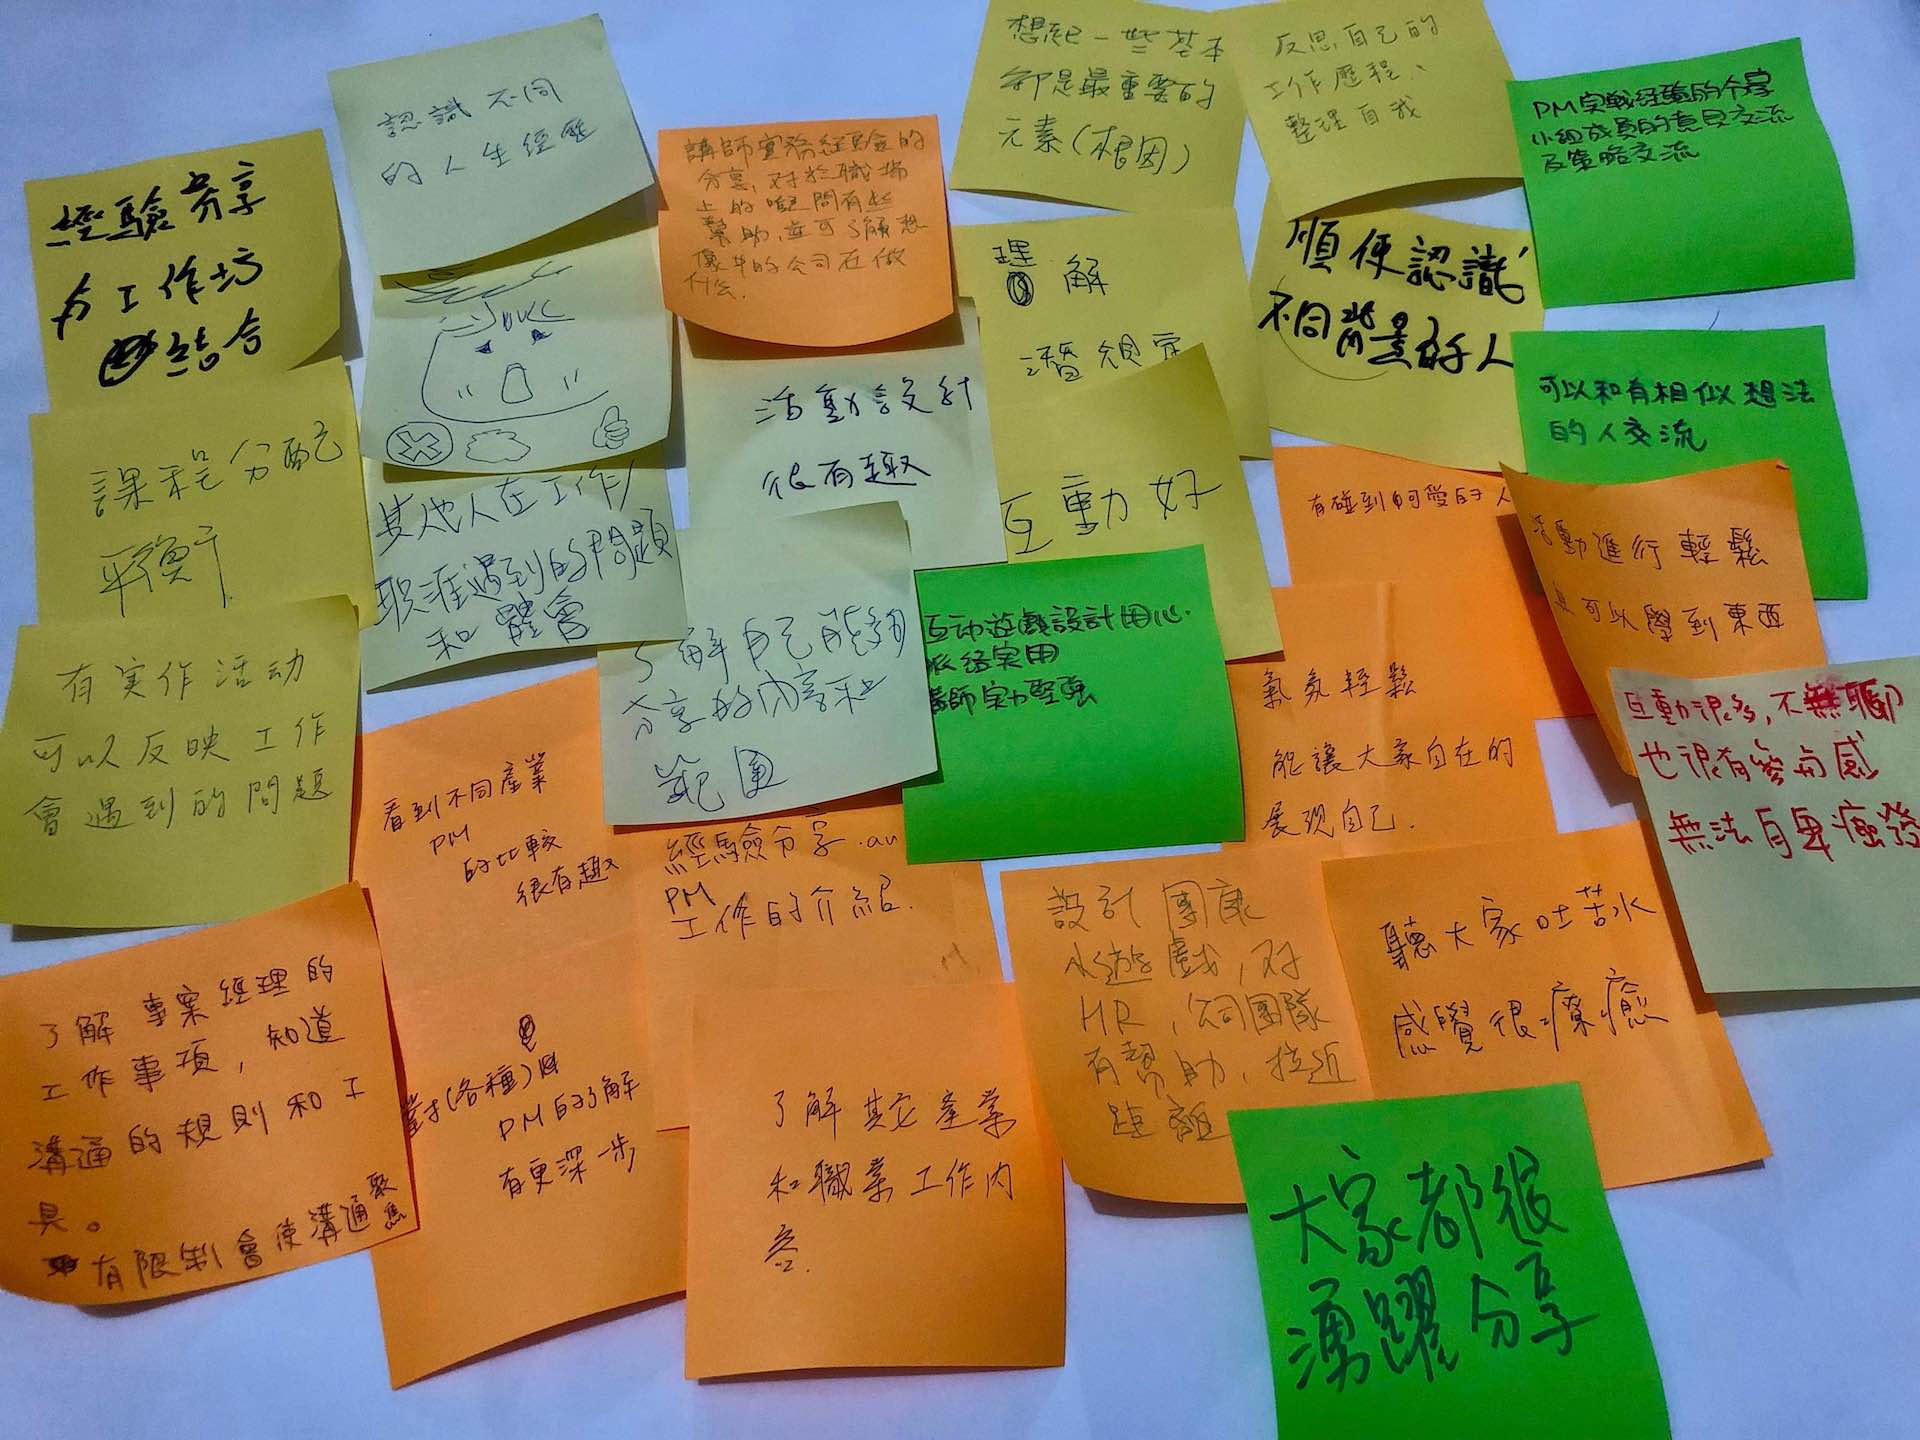 經驗分享
与工作坊
結合
認識不同
的人生經歷
講師實務經驗的
分享,對於職場
上的疑問有些
幫助,並可了解想
像中的公司在做
什么.
想起一些基本
卻是最重要的
元素(根因)
反思自己的
工作歷程、
整理自我
PM实戰经驗的分享
小組成員的意見交流
及策略交流
理解
潛規定
順便認識
不同背景的人
可以和有相似想法
的人交流
課程分配
平衡
其他人在工作/
职涯遇到的問題
和體會
活動設計
很有趣
互動好
有碰到可愛的人
活動進行輕鬆
可以學到東西
有实作活动
可以反映工作
會遇到的問題
了解自己能夠
分享的內容和
範圍
互动遊戲設計用心
实用
講師实力坚强
氣氛輕鬆
能讓大家自在的
展現自己.
互動很多,不無聊
也很有參与感
無法自卑癒發
看到不同產業
PM
的比較
很有趣
經驗分享.
PM
工作的介紹.
設計團康
小遊戲,对
HR,公司團隊
有幫助,拉近
距離
聽大家吐苦水
感覺很療癒
了解專案經理的
工作事項,知道
溝通的規則和工
具。
有限制會使溝通聚焦
對(各種)
PM的了解
有更深一步
了解其它產業
和職業工作內
容.
大家都很
湧躍分享